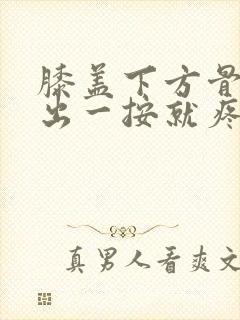 膝盖下方骨
出一按就疼
真男人看爽文